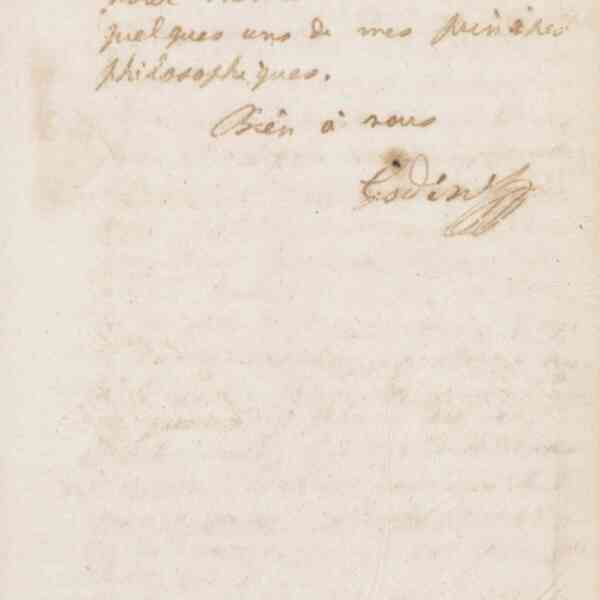 quelques uns de mes principes
philosophiques.
Bien à vous
Godin